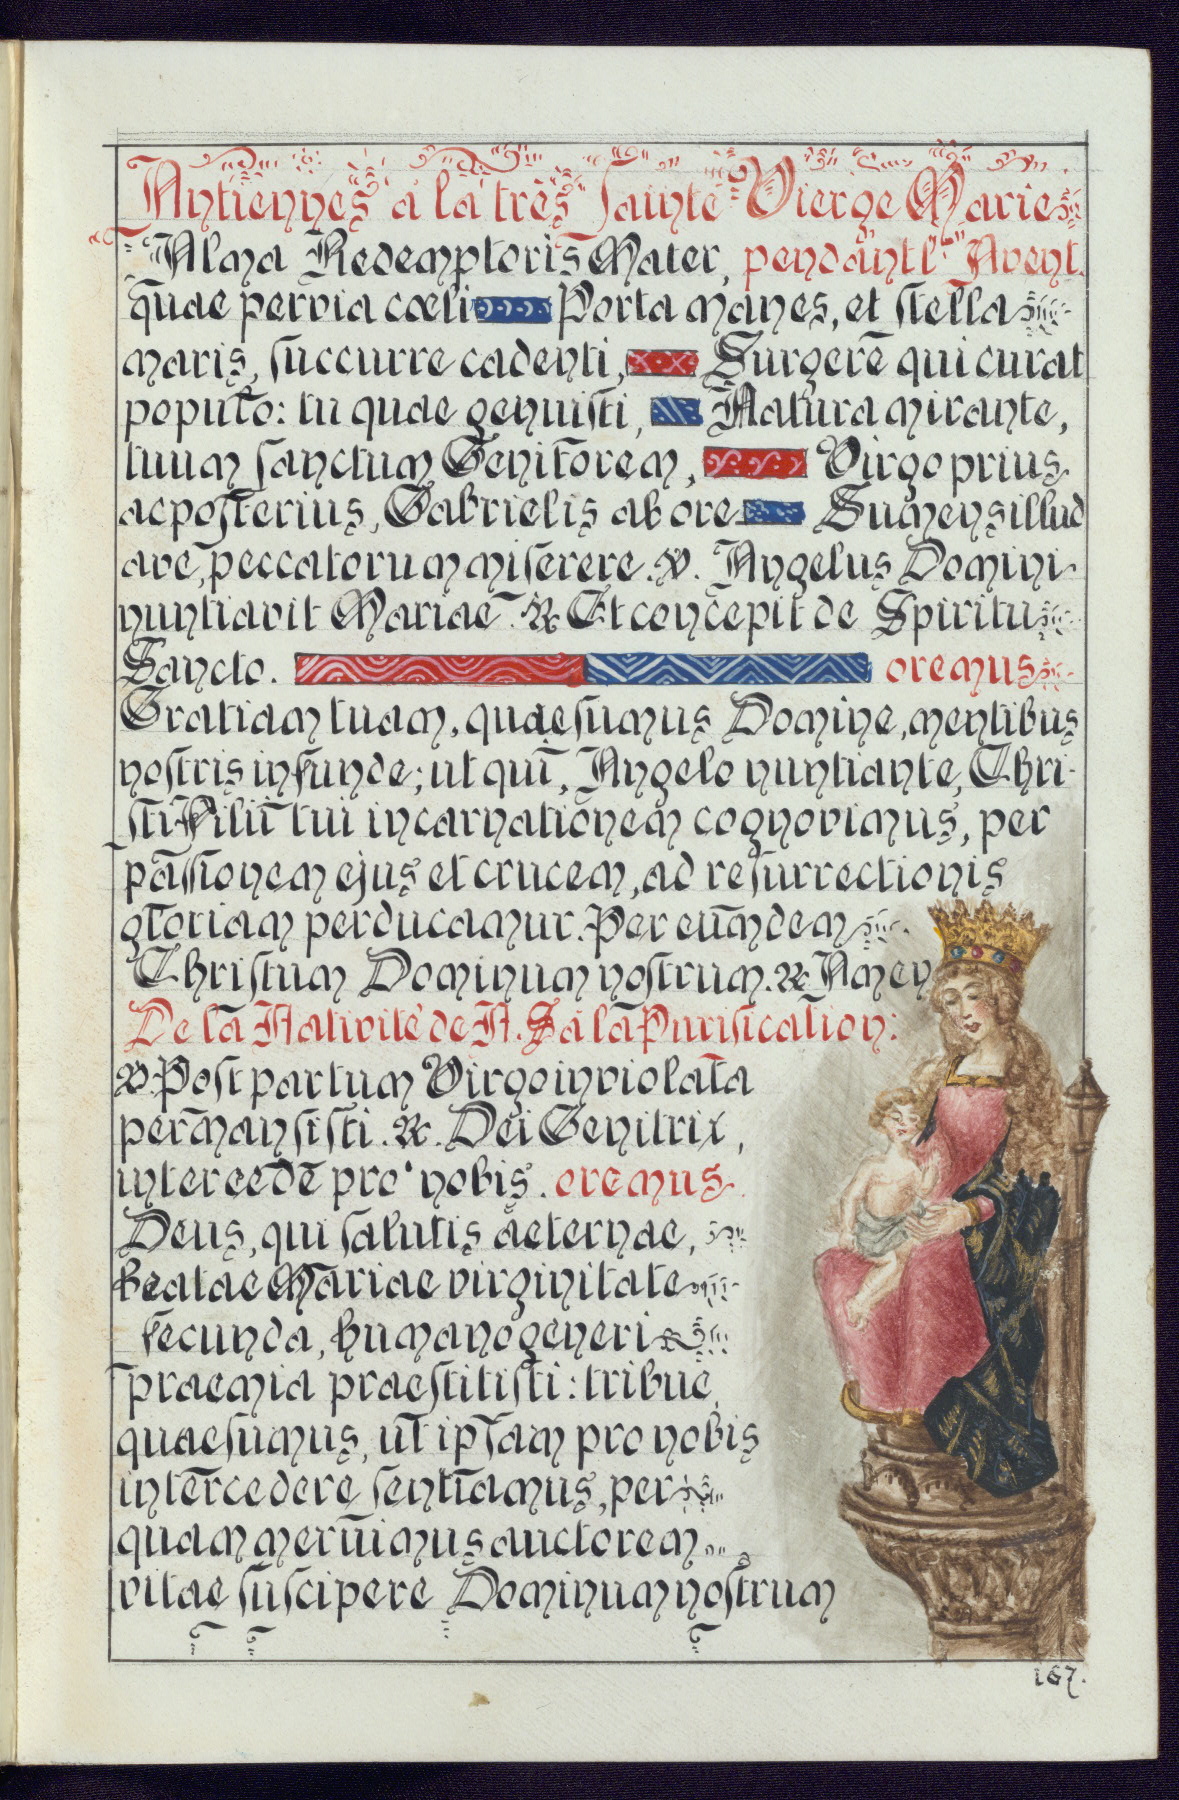 Antiennes à la très Sainte Vierge Marie
Alma Redemptoris Mater, pendant l'Avent.
quae pervia cœli Porta manes, et stella
maris, succurre cadenti, Surgere qui curat
populo: tu quae genuisti, Natura mirante,
tuum sanctum Genitorem, Virgo prius
ac posterius, Gabrielis ab ore Sumens illud
ave, peccatorum miserere. ℣. Angelus Domini
nuntiavit Mariae. ℟ Et concepit de Spiritu
Sancto. oremus
Gratiam tuam, quaesumus Domine, mentibus
nostris infunde; ut qui, Angelo nuntiante, Chri-
sti Filii tui incarnationem cognovimus, per
passionem ejus et crucem, ad resurrectionis
gloriam perducamur. Per eumdem
Christum Dominum nostrum. ℟ Amen
De la Nativité de N. S. à la Purification:
℣. Post partum Virgo inviolata
permansisti. ℟. Dei Genitrix,
intercede pro nobis. oremus.
Deus, qui salutis aeternae,
beatae Mariae virginitate
fecunda, humano generi
praemia praestitisti: tribue,
quaesumus, ut ipsam pro nobis
intercedere sentiamus, per
quam meruimus auctorem
vitae suscipere Dominum nostrum
167.